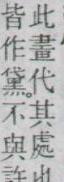 此畫代其處也
皆作黛。不與許